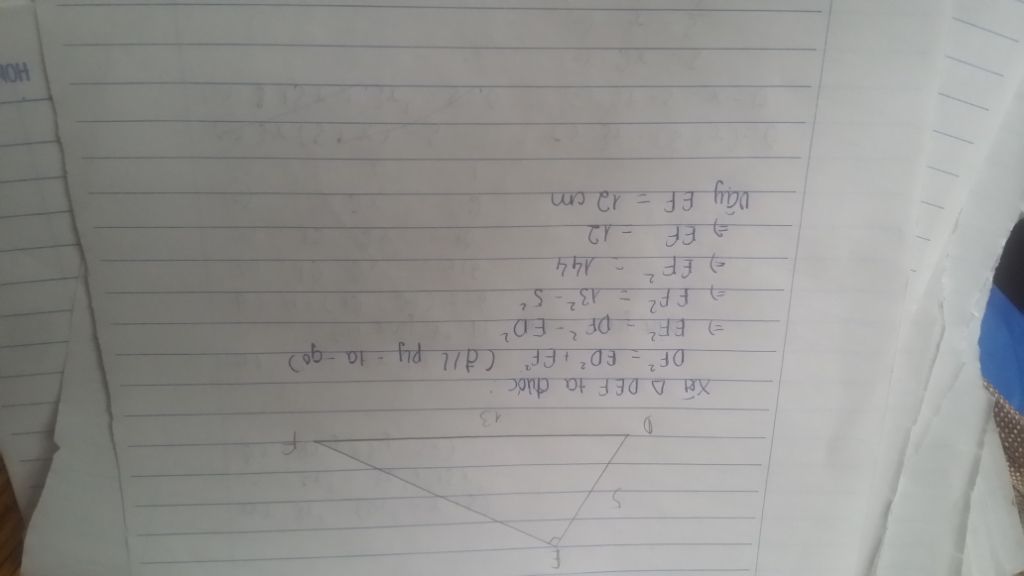 E
5
D
F
13
Xét Δ DEF ta được :
DF² = ED² + EF² (đ/l py - ta - go)
=> EF² = DF² - ED²
=> EF² = 13² - 5²
=> EF² = 144
=> EF = 12
Vậy EF = 12 cm